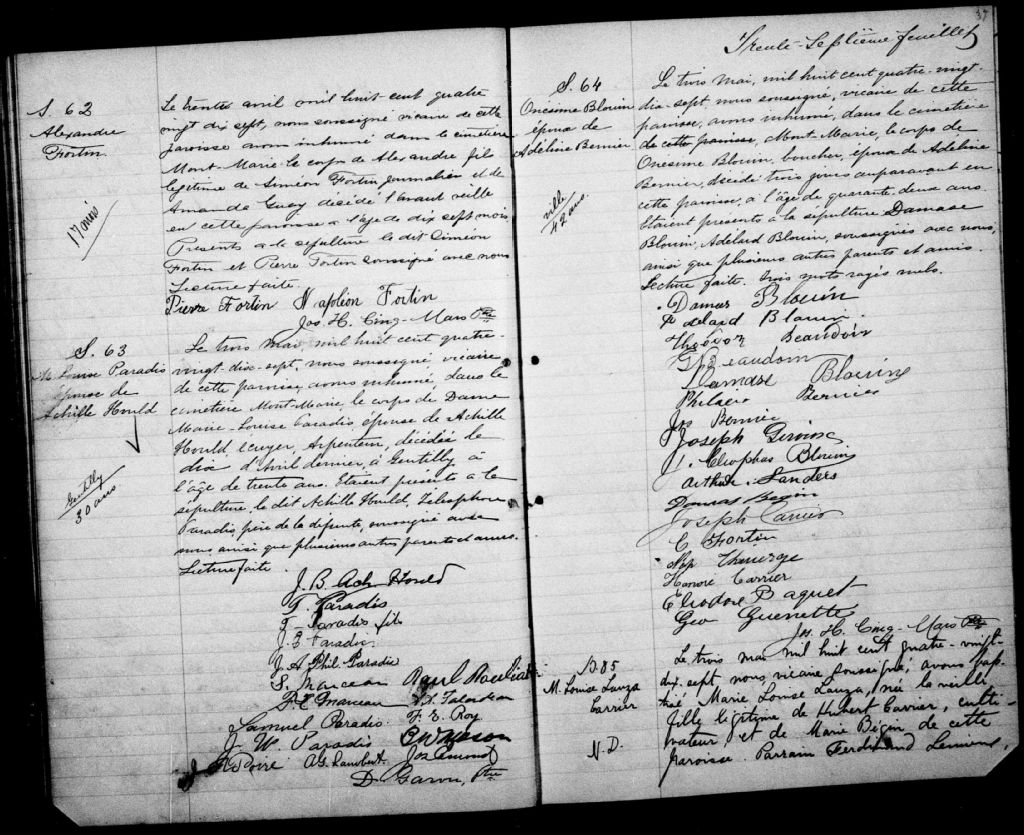 S. 62
Alexandre
Fortin.
17 mois
Le trentes avril mil huit cent quatre
vingt dix sept, nous soussigné vicaire de cette
paroisse avons inhumé dans le cimetière
Mont-Marie le corps de Alexandre fils
légitime de Siméon Fortin journalier et de
Amanda Guay décédé l'avant veille
en cette paroisse a l'age de dix sept mois
Présents a la sépulture le dit Siméon
Fortin et Pierre Fortin soussigné avec nous
Lecture faite.
Pierre Fortin Napoléon Fortin
Jos. H. Cinq-Mars Ptre
S. 63
M. Louise Paradis
épouse de
Achille Hould
Gentilly
30 ans
Le trois Mai, mil huit cent quatre-
vingt-dix-sept, nous soussigné vicaire
de cette paroisse, avons inhumé, dans le
cimetière Mont-Marie le corps de Dame
Marie-Louise Paradis épouse de Achille
Hould, Ecuyer, Arpenteur, décédée le
dix d'Avril dernier, à Gentilly à
l'âge de trente ans. Etaient présents à la
sépulture, le dit Achille Hould, Télesphore
Paradis, père de la défunte, soussigné avec
nous ainsi que plusieurs autres parents et amies.
Lecture faite.
J. B. Ach. Hould
T. Paradis
T. Paradis fils
J. E. Paradis
J. A. Phil. Paradis
S. Marceau
F. E. Marceau
Samuel Paradis F. E. Roy
J. W. Paradis
A. G. Lambert.
D. Garon, Ptre
37
Trente-Septième feuillet
S. 64
Onésime Blouin
époux de
Adéline Bernier
ville
42 ans.
Le trois Mai, mil huit cent quatre-vingt-
dix-sept nous soussigné, vicaire de cette
paroisse, avons inhumé, dans le cimetière
de cette paroisse, Mont-Marie, le corps de
Onésime Blouin, boucher, époux de Adeline
Bernier, décédé trois jours auparavant en
cette paroisse, à l'âge de quarante-deux ans
Etaient présents à la sépulture Damase
Blouin, Adélard Blouin, soussignés avec nous,
ainsi que plusieurs autres parents et amis.
Lecture faite. trois mots rayés nuls.
Damas Blouin
Adelard Blouin
Beaudoin
Damase Blouin
Bernier
Jos Bernier
Joseph
J. Cleophas Blouin
Arthur Landers
Damas Begin
Joseph Carrier
C Fortin
Nap Theverge
Honoré Carrier
Eliodore Paquet
Geo Guenette
Jos. H. Cinq-Mars Ptre
B. 85
M. Louise Lauza
Carrier
N. D.
Le trois mai mil huit cent quatre-vingt-
dix-sept nous, vicaire soussigné, avons bap-
tisé Marie Louise Lauza, née la veille
fille légitime de Hubert Carrier, culti-
vateur, et de Marie Bégin de cette
paroisse. Parrain Ferdinand Lemieux,